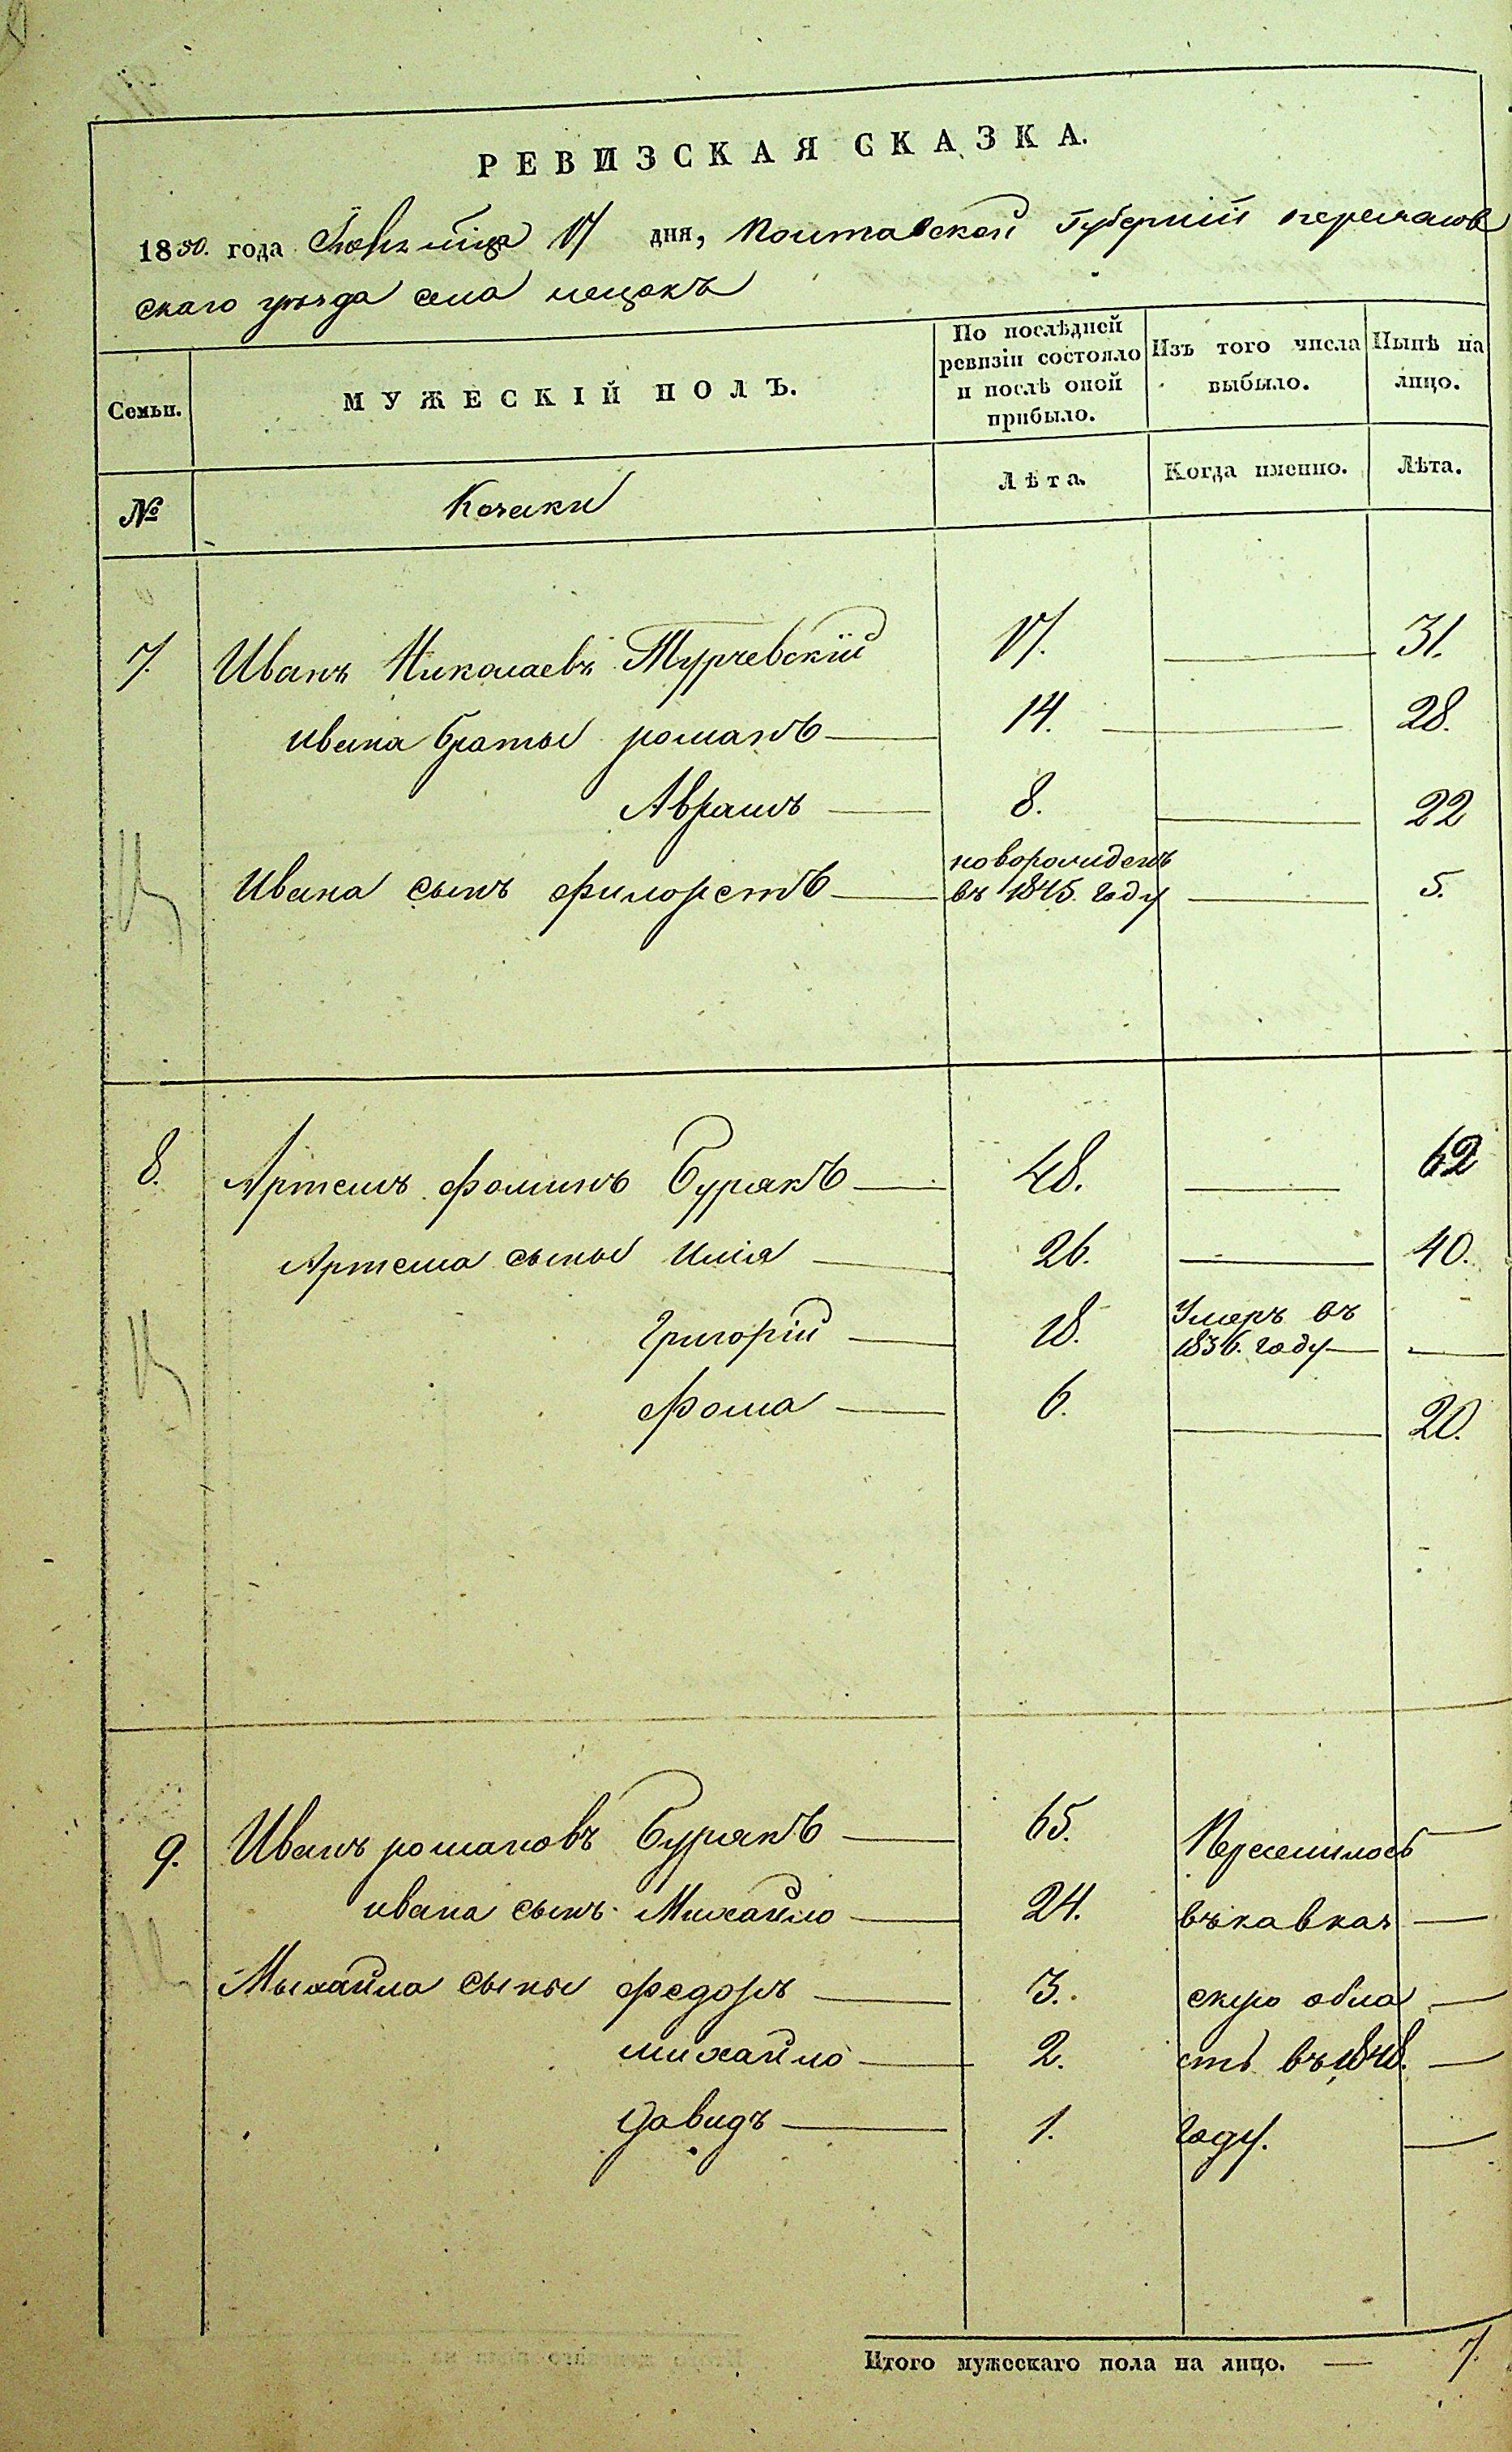 РЕВИЗСКАЯ СКАЗКА.
1850. года месяца 17 дня, Полтавской Губерніи переяслов
скаго уезда села
Семьи. МУЖЕСКІЙ ПОЛЪ. По послѣдней ревизіи состояло и послѣ оной прибыло. Изъ того числа выбыло. Нынѣ на лицо.
№ Козаки Лѣта. Когда именно. Лѣта.
7. Иванъ Николаевъ Турчевскій 17. — 31.
ивана братья романъ — 14. — 28.
Аврамъ — 8. — 22
Ивана сынъ филоретъ — новорожденъ въ 1845. году — 5.
8. Артемъ фоминъ Бурякъ — 48. — 62
Артема сыны илія — 26. — 40.
Григорій — 18. Умеръ въ 1836. году — —
фома — 6. — 20.
9. Иванъ романовъ Бурякъ — 65. Переселилось —
ивана сынъ Михайло — 24. въкавказ —
Михайла сыны федоръ — 3. скую обла —
михайло — 2. сть въ 1848. —
давидъ — 1. году. —
Итого мужескаго пола на лицо. — 7.